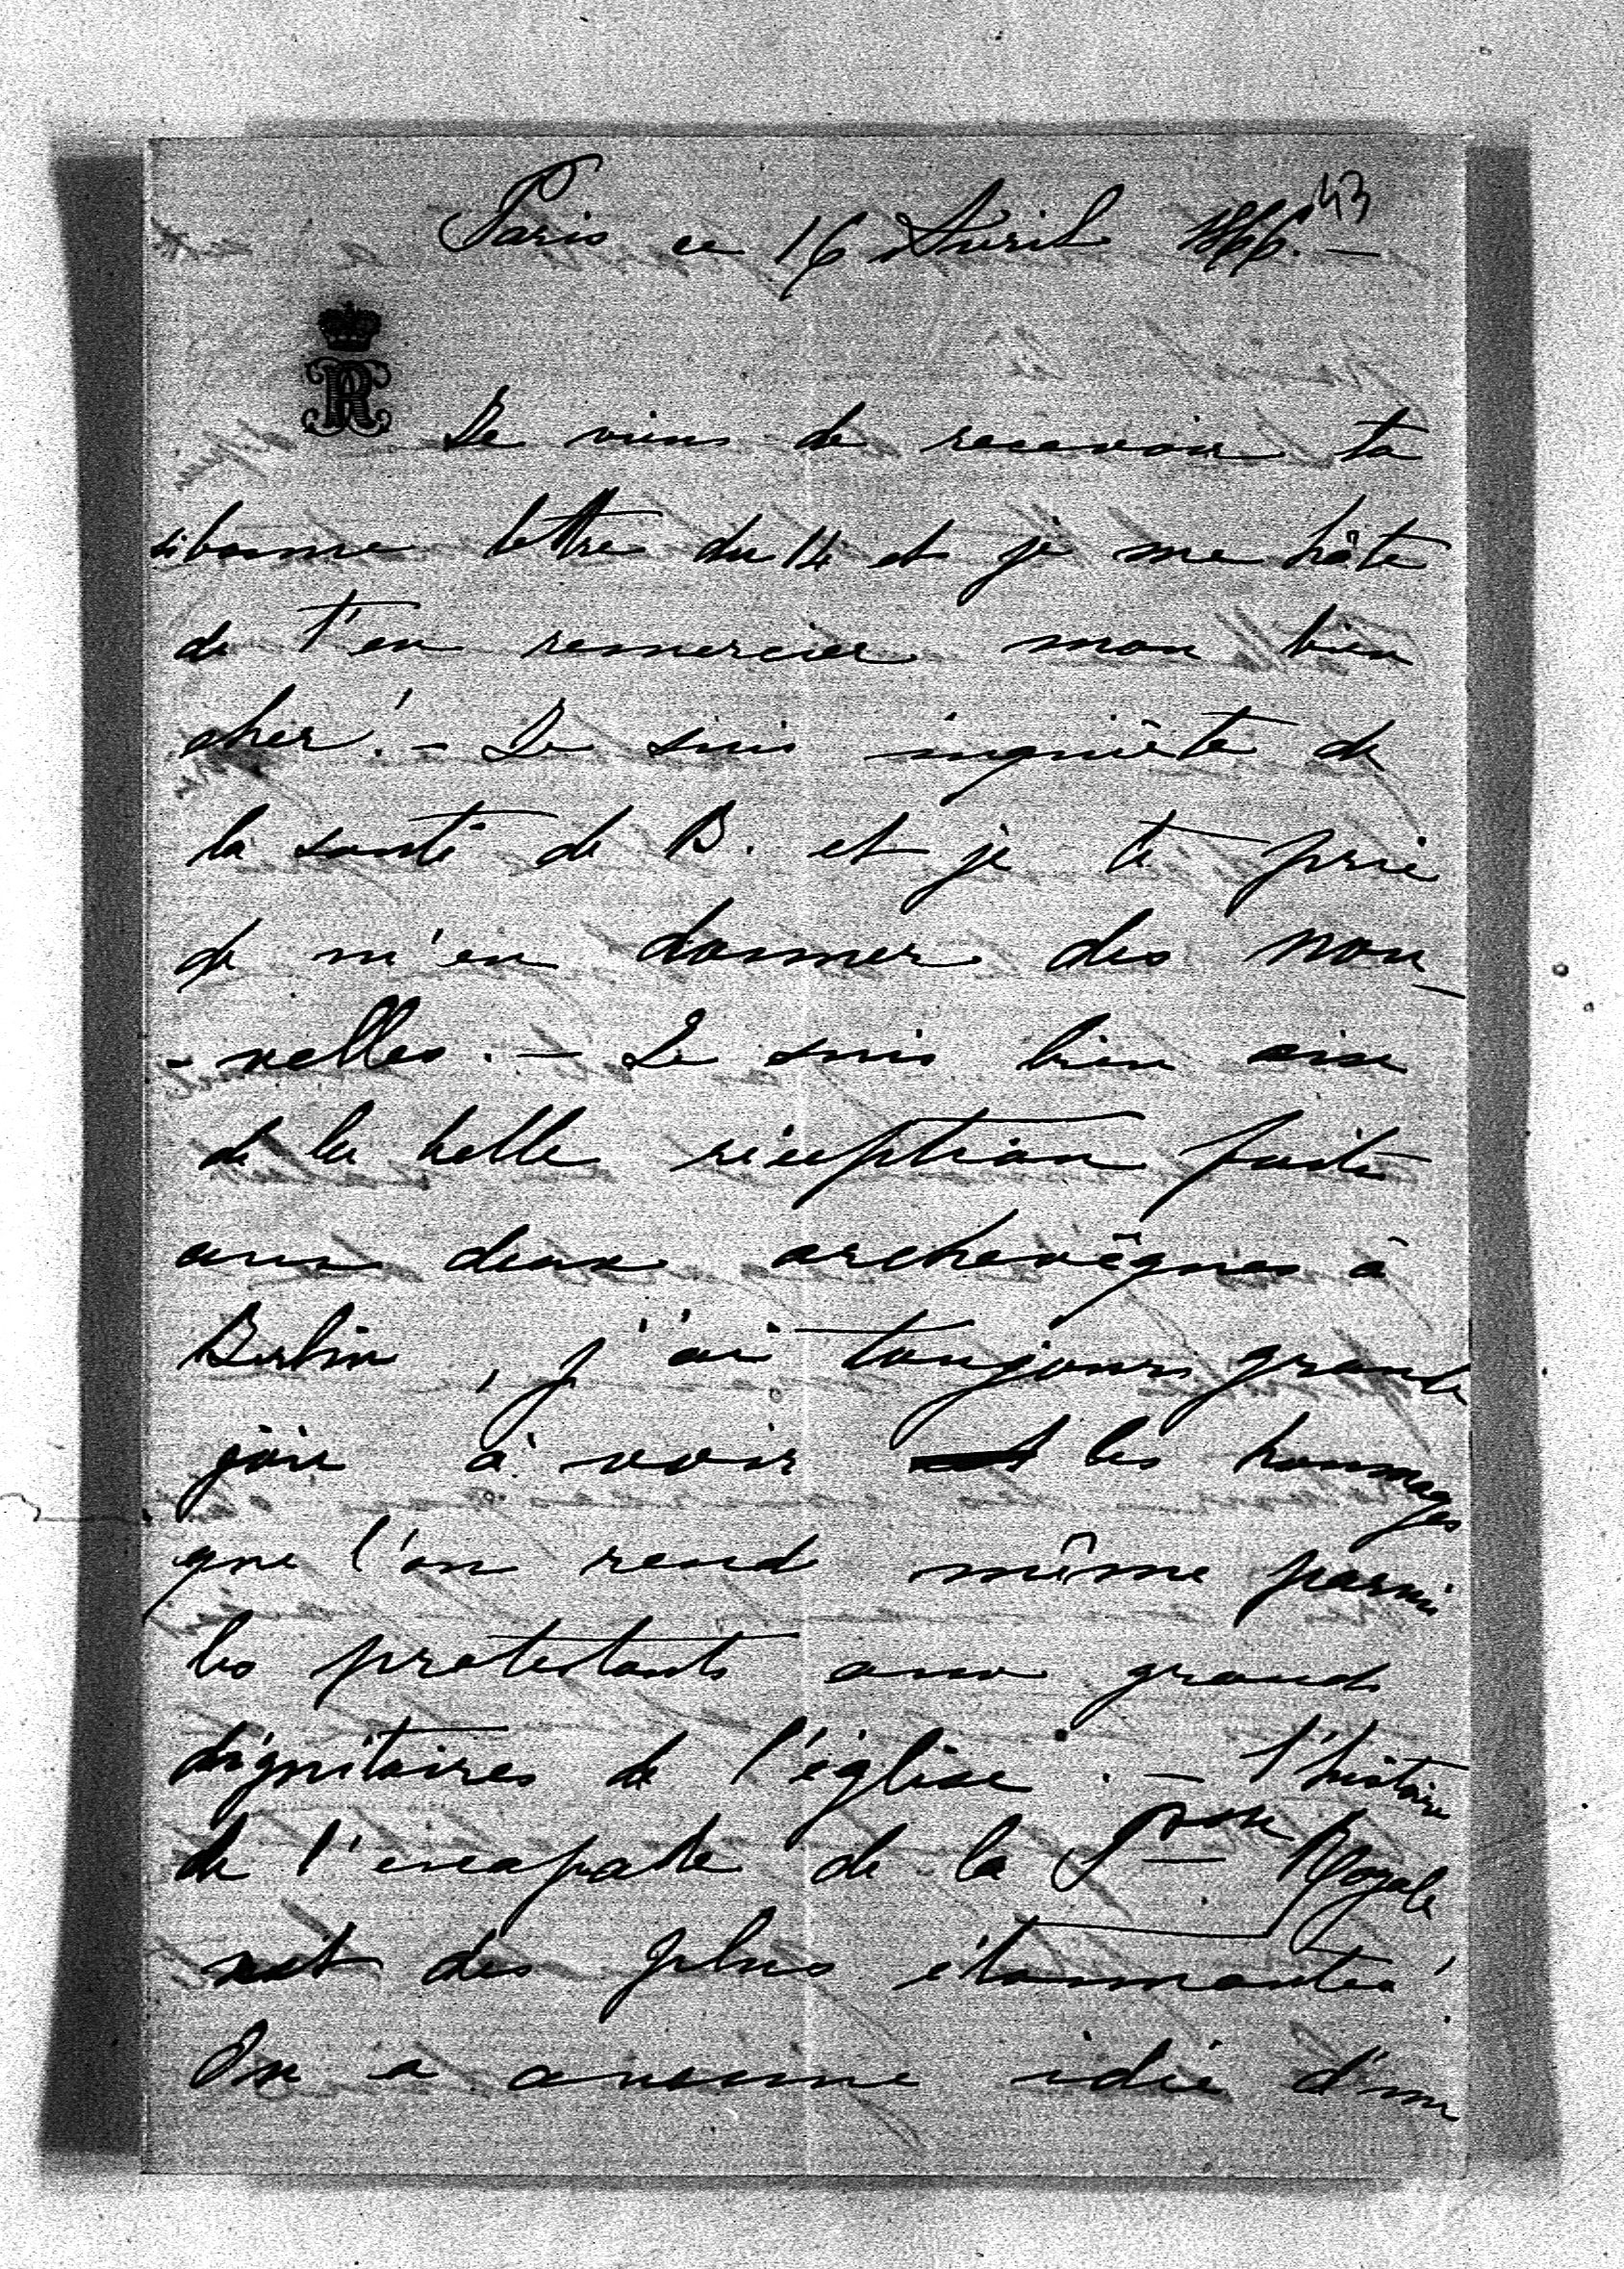 43
Paris ce 16 Avril 1866. —
Je viens de recevoir ta
si bonne lettre du 14 et je me hâte
de t'en remercier mon bien
cher! — Je suis inquiète de
la santé de B. et je te prie
de m'en donner des nou-
-velles. — Je suis bien aise
de la belle réception faite
aux deux archevêques à
Berlin, j'ai toujours grande
joie à voir les hommages
que l'on rend même parmi
les protestants aux grands
dignitaires de l'église. — l'histoire
de l'escapade de la Psse Royale
est des plus étonnantes!
On a aucune idée d'un